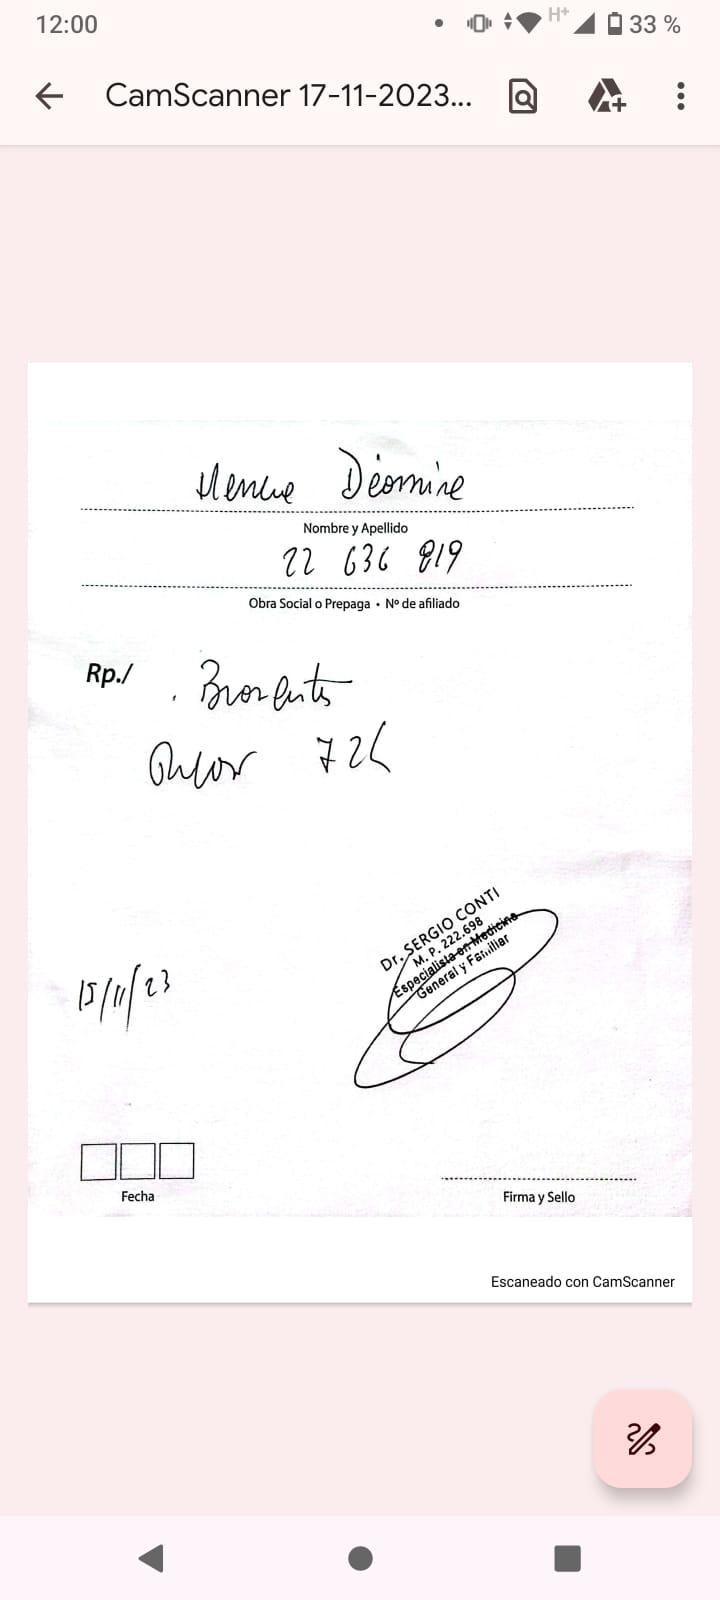 12:00
H+
33 %
CamScanner 17-11-2023...
Nombre y Apellido
22 636 819
Obra Social o Prepaga • Nº de afiliado
Rp./
72h
Dr. SERGIO CONTI
M. P. 222.698
Especialista en Medicina
General y Familiar
15/11/23
Fecha
Firma y Sello
Escaneado con CamScanner